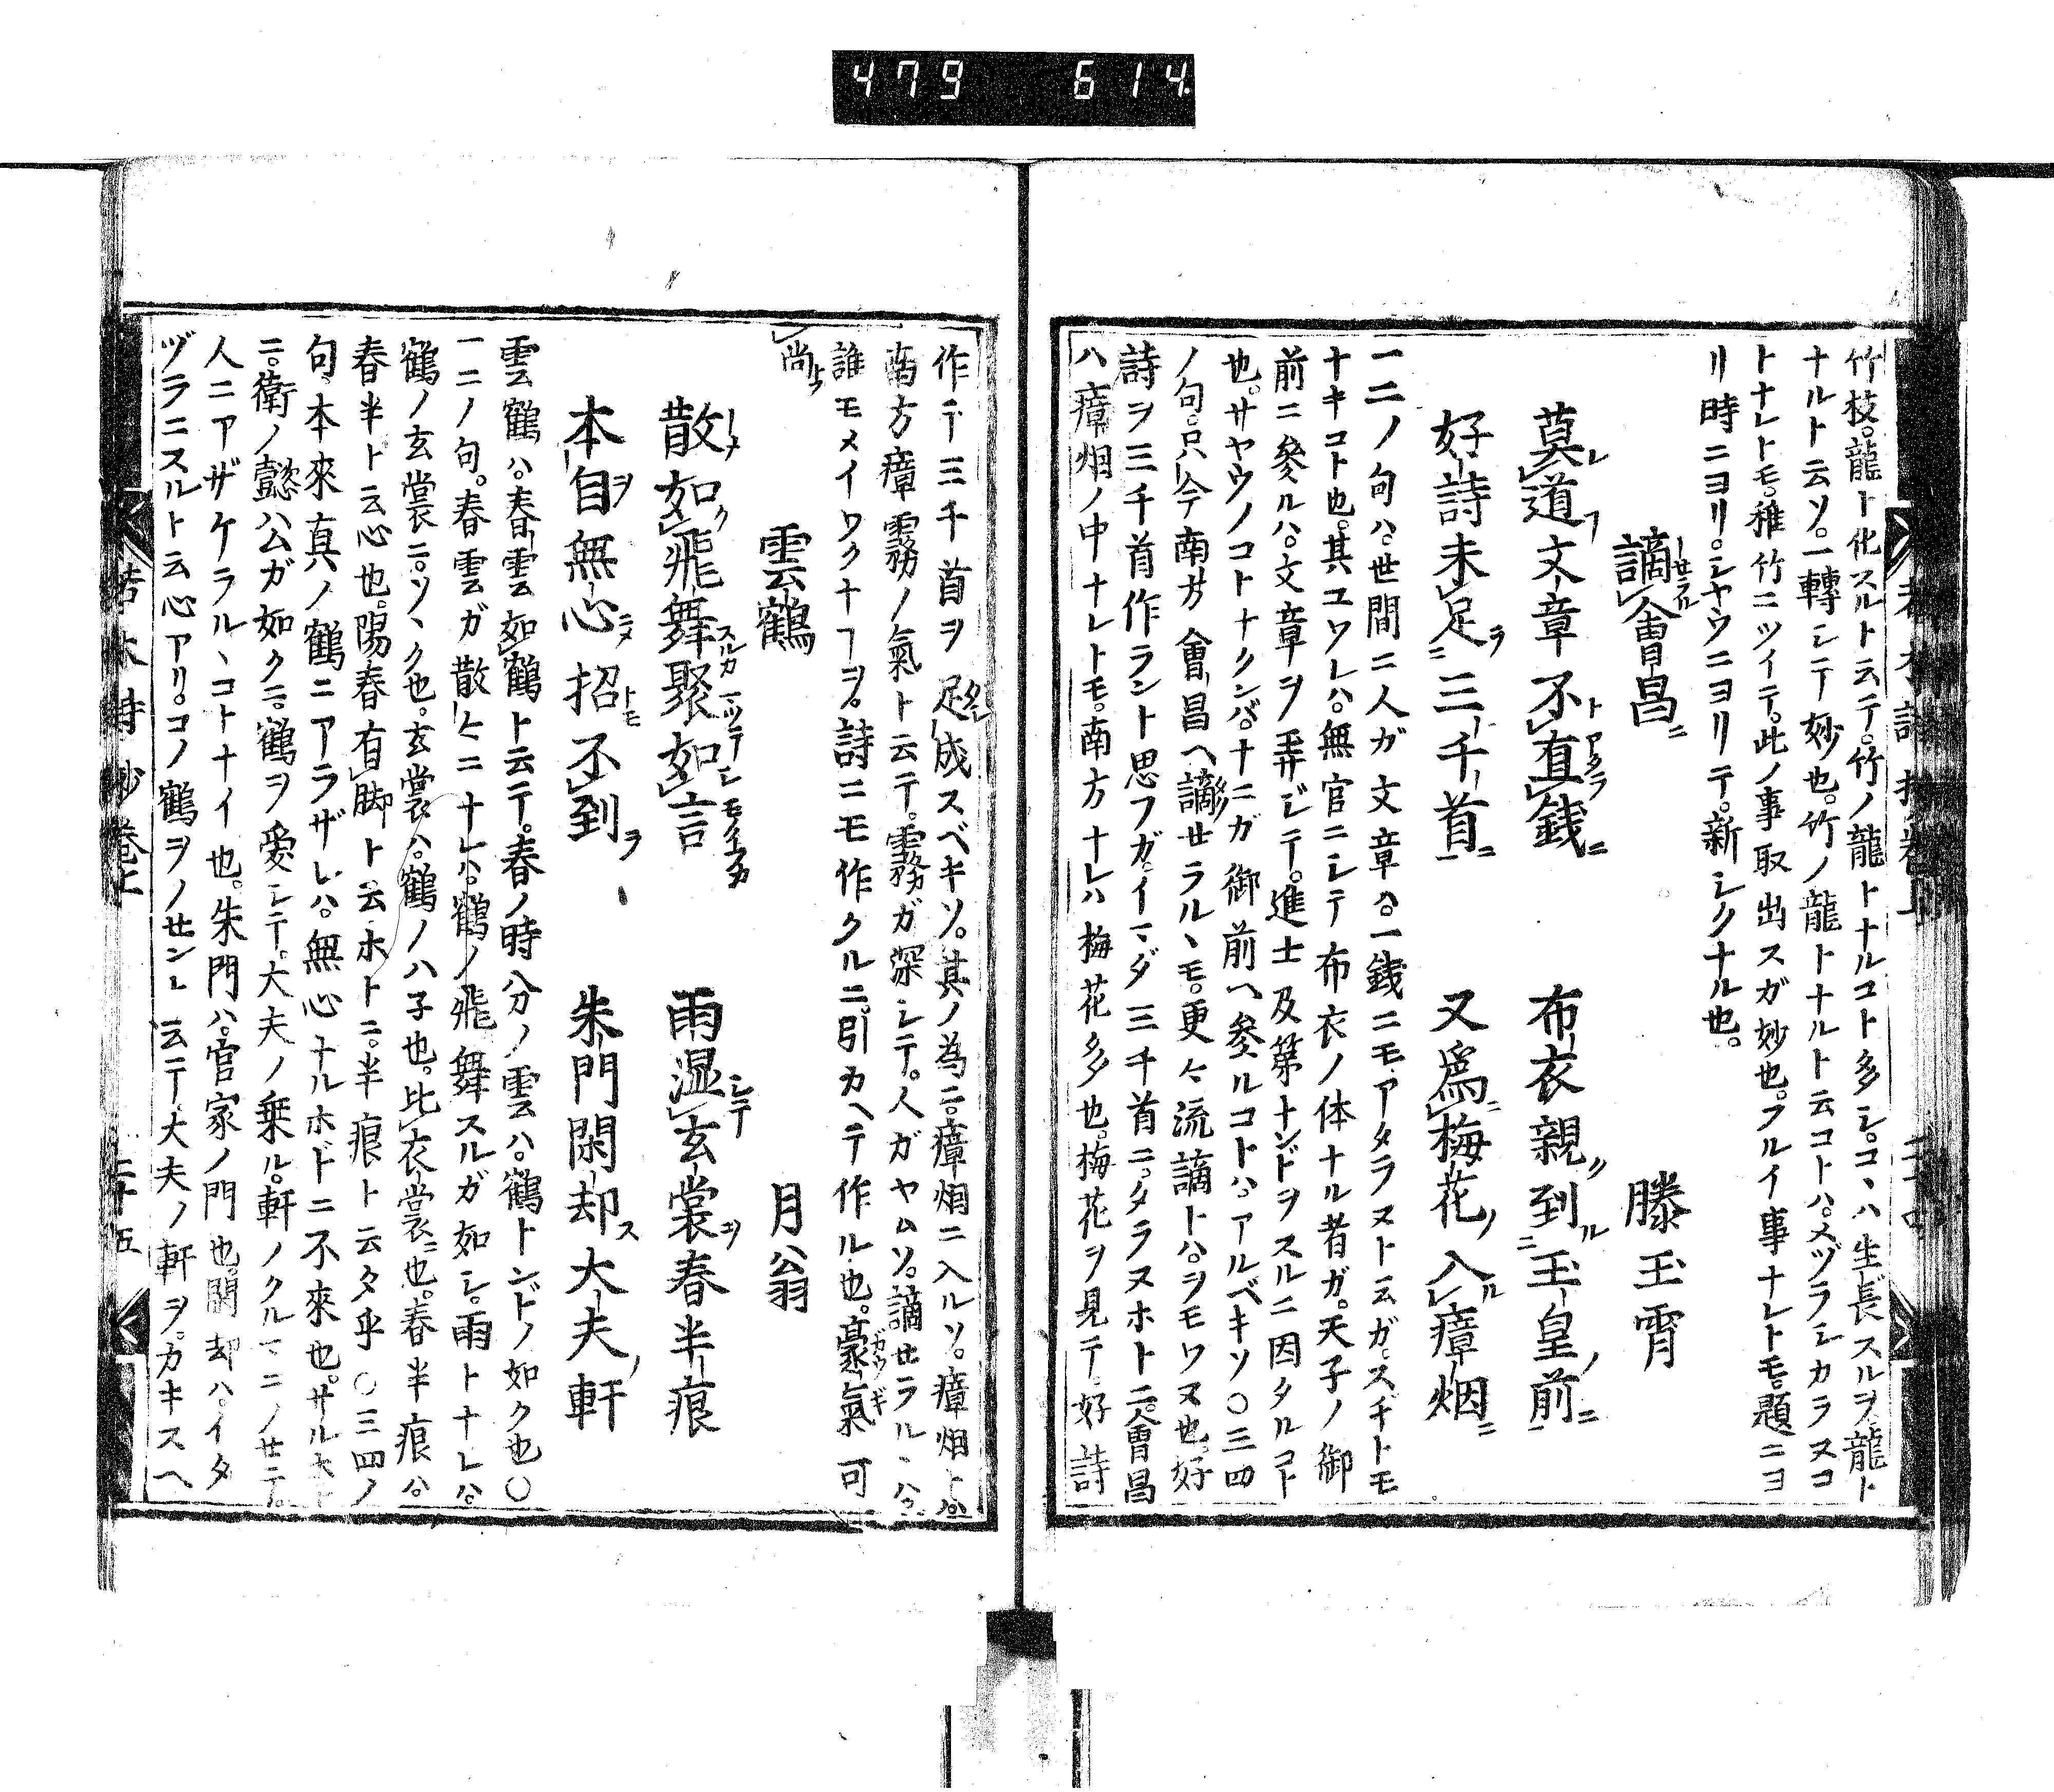 479 614
竹枝。龍ト化スルト云テ。竹ノ龍トナルコト多シ。コヽハ生長スルヲ龍ト
ナルト云ソ。一轉シテ妙也。竹ノ龍トナルト云コトハ。メヅラシカラヌコ
トナレトモ。稚竹ニツイテ。此ノ事取出スガ妙也。フルイ事ナレトモ。題ニヨ
リ時ニヨリ。シヤウニヨリテ。新シクナル也。
謫會昌 滕玉霄
莫道文章不直錢 布衣親到玉皇前
好詩未足三千首 又爲梅花入瘴烟
一二ノ句ハ。世間ニ人ガ文章ハ。一錢ニモアタラヌト云ガ。スチトモ
ナキコト也。其ユワレハ。無官ニシテ布衣ノ体ナル者ガ。天子ノ御
前ニ參ルハ。文章ヲ弄ビテ。進士及第ナンドヲスルニ因タルコト
也。サヤウノコトナクンバ。ナニガ御前ヘ參ルコトハ。アルベキソ〇三四
ノ句。只今南方會昌ヘ謫セラルヽモ。更ニ流謫トハ。ヲモワヌ也。好
詩ヲ三千首作ラント思フガ。イマダ三千首ニ。タラヌホトニ。會昌
ハ瘴烟ノ中ナレトモ。南方ナレハ梅花多也。梅花ヲ見テ。好詩
作テ三千首ヲ足成スベキソ。其ノ為ニ。瘴烟ニ入ルソ。瘴烟トハ。
南方瘴霧ノ氣ト云テ。霧ガ深シテ。人ガヤムソ。謫セラルヽハ。
誰モメイワクナヿヲ。詩ニモ作クルニ。引カヘテ作ル也。豪氣可
尚
雲鶴 月翁
散如飛舞聚如言 雨湿玄裳春半痕
本自無心招不到 朱門閑却大夫軒
雲鶴ハ。春雲如鶴ト云テ。春ノ時分ノ雲ハ。鶴トンドノ如ク也〇
一二ノ句。春雲ガ散々ニナレハ。鶴ノ飛舞スルガ如シ。雨トナレハ。
鶴ノ玄裳ニ。ソヽク也。玄裳ハ。鶴ノハ子也。比衣裳ニ也。春半痕ハ。
春半ト云心也。陽春有脚ト云ホトニ。半痕ト云タ乎〇三四ノ
句。本來真ノ鶴ニアラザレハ。無心ナルホドニ不來也。サルホト
ニ。衛ノ懿公ガ如クニ。鶴ヲ愛シテ。大夫ノ乗ル。軒ノクルマニノセテ。
人ニアザケラルヽコトナイ也。朱門ハ。官家ノ門也。閑却ハ。イタ
ヅラニスルト云心アリ。コノ鶴ヲノセンレ云テ大夫ノ軒ヲ。カキスヘ